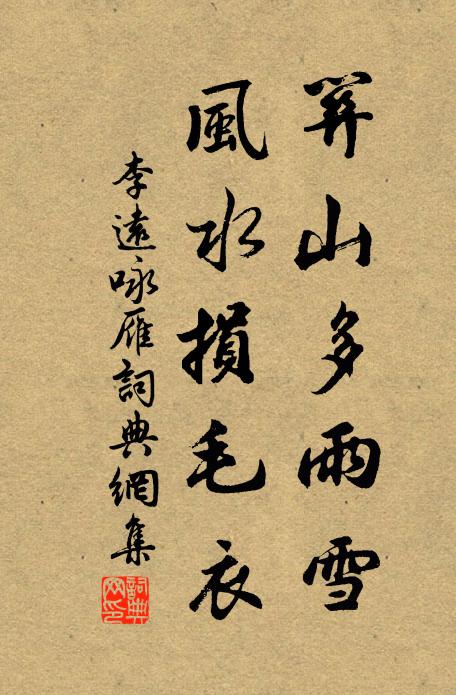 關山多雨雪
風水損毛衣
李遠咏雁詞典網集
詞典网印